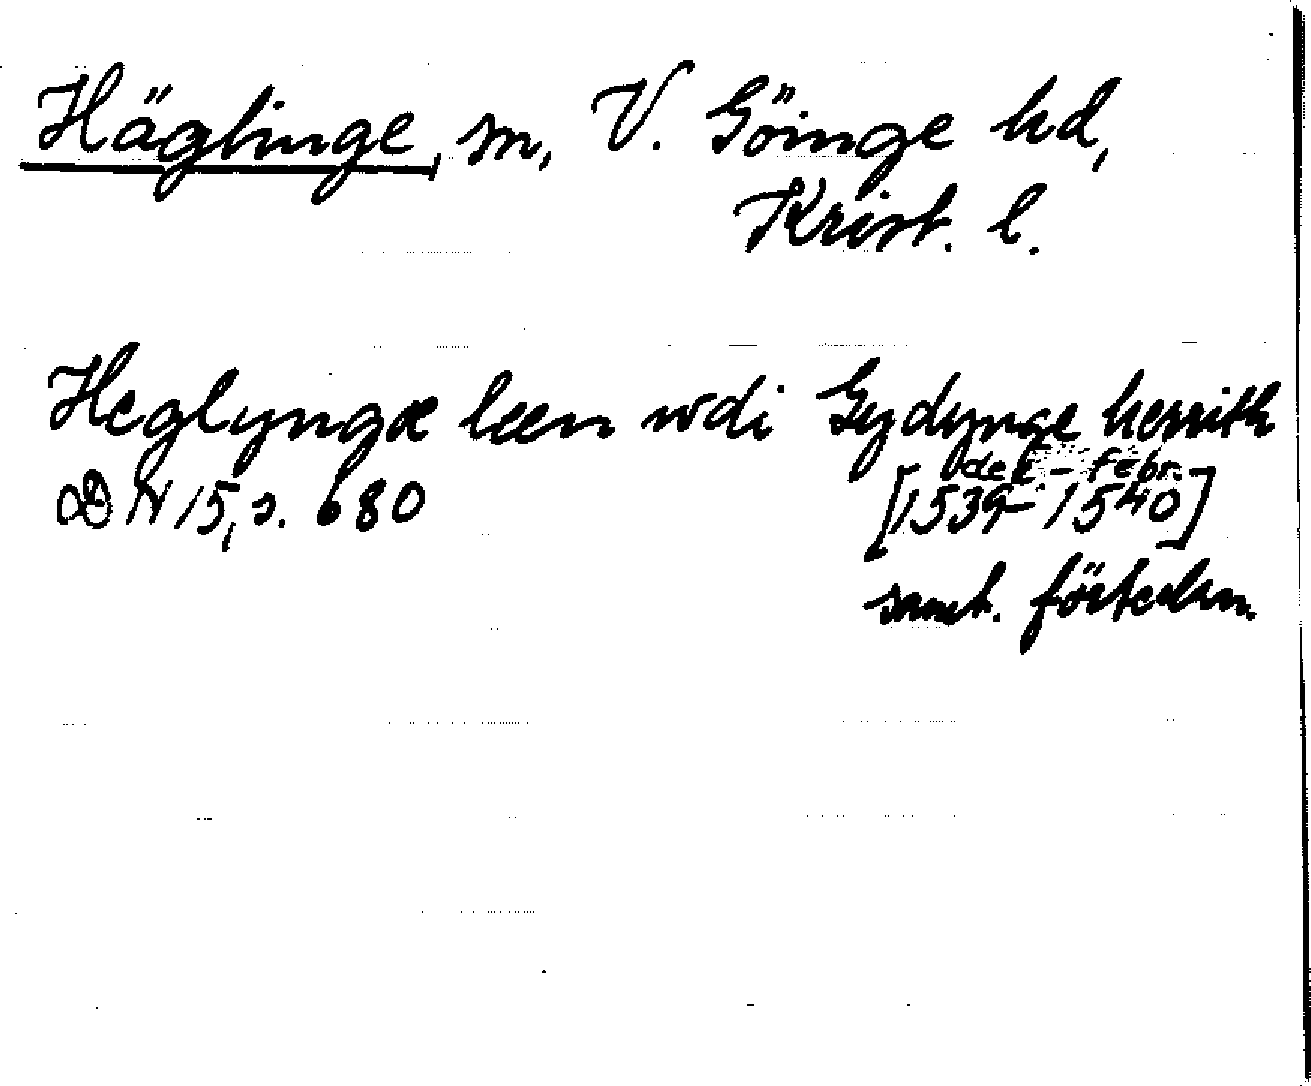 Häglinge, sn, V. Göinge hd,
Krist. l.
Heglyngæ leen wdi Gydynge herrith
DN 15, s. 680
dec - febr.
[1539-1540]
samt. förteckn.